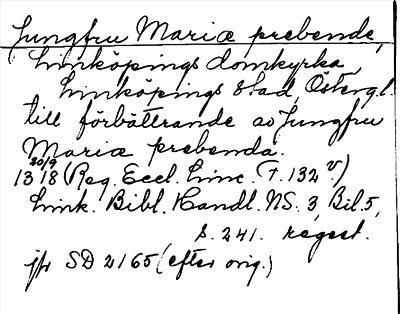 Jungfru Mariæ prebende,
Linköpings domkyrka,
Linköpings stad, Österg.l.
till förbättrande av Jungfru
Mariæ prebenda.
13 20/9 18 (Reg. Eccl. Linc. (f. 132 v.)
Link. Bibl. Handl. NS. 3, Bil. 5,
s. 241. regest.
jfr SD 2165 (efter orig.)